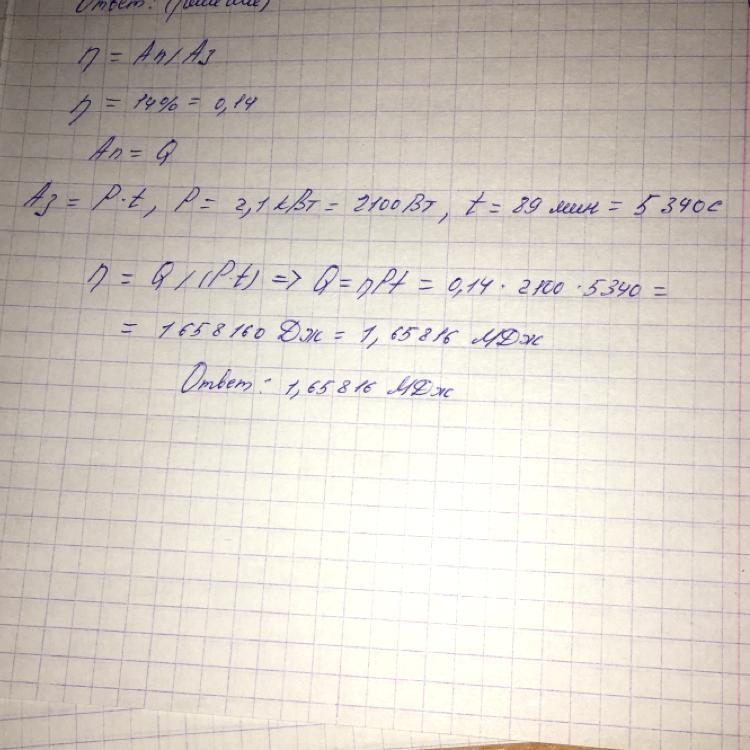 Ответ: (решение)
η = Ап/Аз
η = 14% = 0,14
Ап = Q
Аз = P·t, P = 2,1 кВт = 2100 Вт, t = 89 мин = 5340с
η = Q/(P·t) => Q = ηPt = 0,14 · 2100 · 5340 =
= 1658160 Дж = 1,65816 МДж
Ответ: 1,65816 МДж